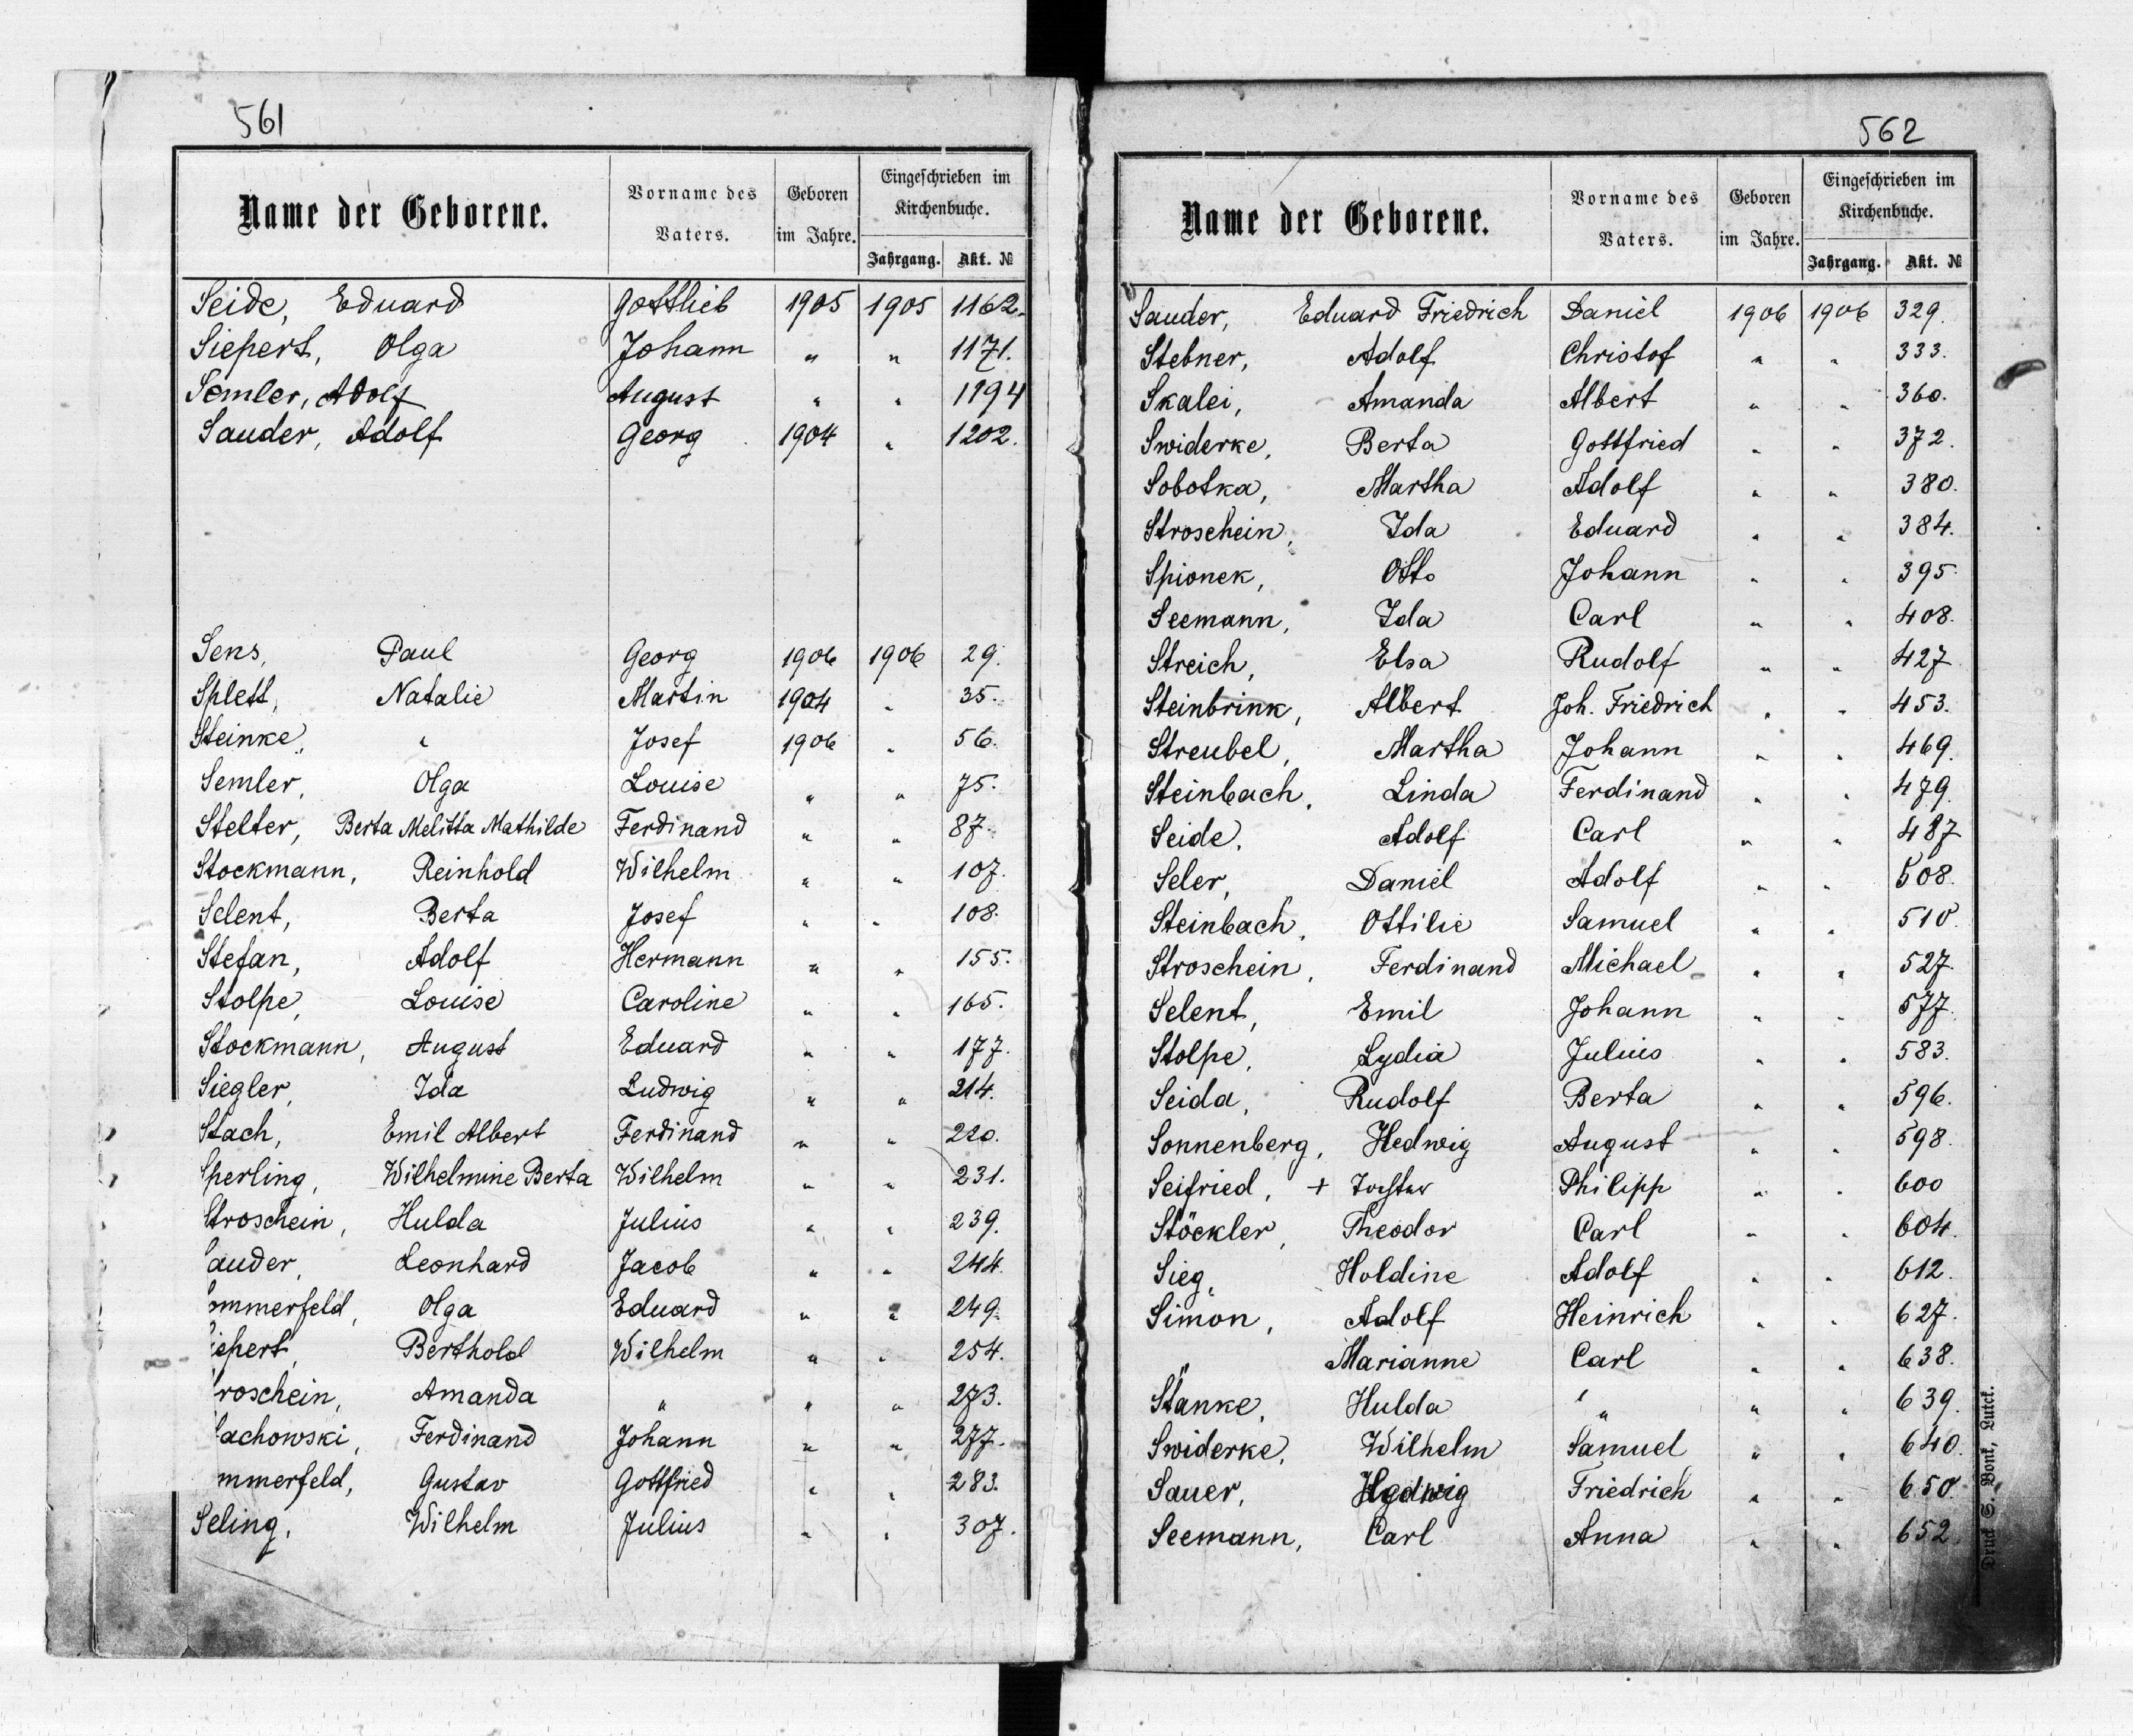 561
Name der Geborene. Vorname des Vaters. Geboren im Jahre. Eingeschrieben im Kirchenbuche. Jahrgang. Akt. №
Seide, Eduard Gottlieb 1905 1905 1162.
Siepert, Olga Johann " " 1171.
Semler, Adolf August " " 1194
Sauder, Adolf Georg 1904 " 1202.
Sens, Paul Georg 1906 1906 29.
Splett, Natalie Martin 1904 " 35.
Steinke, " Josef 1906 " 56.
Semler, Olga Louise " " 75.
Stelter, Berta Melitta Mathilde Ferdinand " " 87.
Stockmann, Reinhold Wilhelm " " 107.
Selent, Berta Josef " " 108.
Stefan, Adolf Hermann " " 155.
Stolpe, Louise Caroline " " 165.
Stockmann, August Eduard " " 177.
Siegler, Ida Ludwig " " 214.
Stach, Emil Albert Ferdinand " " 220.
Sperling, Wilhelmine Berta Wilhelm " " 231.
Stroschein, Hulda Julius " " 239.
auder, Leonhard Jacob " " 244.
ommerfeld, Olga Eduard " " 249.
iepert, Berthold Wilhelm " " 254.
roschein, Amanda " " " 273.
achowski, Ferdinand Johann " " 277.
mmerfeld, Gustav Gottfried " " 283.
Seling, Wilhelm Julius " " 307.
562
Name der Geborene. Vorname des Vaters. Geboren im Jahre. Eingeschrieben im Kirchenbuche. Jahrgang. Akt. №
Sauder, Eduard Friedrich Daniel 1906 1906 329.
Stebner, Adolf Christof " " 333.
Skalei, Amanda Albert " " 360.
Swiderke, Berta Gottfried " " 372.
Sobotka, Martha Adolf " " 380.
Stroschein, Ida Eduard " " 384.
Spionek, Otto Johann " " 395.
Seemann, Ida Carl " " 408.
Streich, Elsa Rudolf " " 427
Steinbrink, Albert Joh. Friedrich " " 453.
Streubel, Martha Johann " " 469.
Steinbach, Linda Ferdinand " " 479.
Seide, Adolf Carl " " 487
Seler, Daniel Adolf " " 508.
Steinbach, Ottilie Samuel " " 510.
Stroschein, Ferdinand Michael " " 527.
Selent, Emil Johann " " 577.
Stolpe, Lydia Julius " " 583.
Seida, Rudolf Berta " " 596.
Sonnenberg, Hedwig August " " 598.
Seifried, + Philipp " " 600
Stöckler, Theodor Carl " " 604.
Sieg, Holdine Adolf " " 612.
Simon, Adolf Heinrich " " 627.
" Marianne Carl " " 638.
Stanke, Hulda " " " 639.
Swiderke, Wilhelm Samuel " " 640.
Sauer, Hedwig Friedrich " " 650.
Seemann, Carl Anna " " 652.
Druck S. Bonk, Lutck.